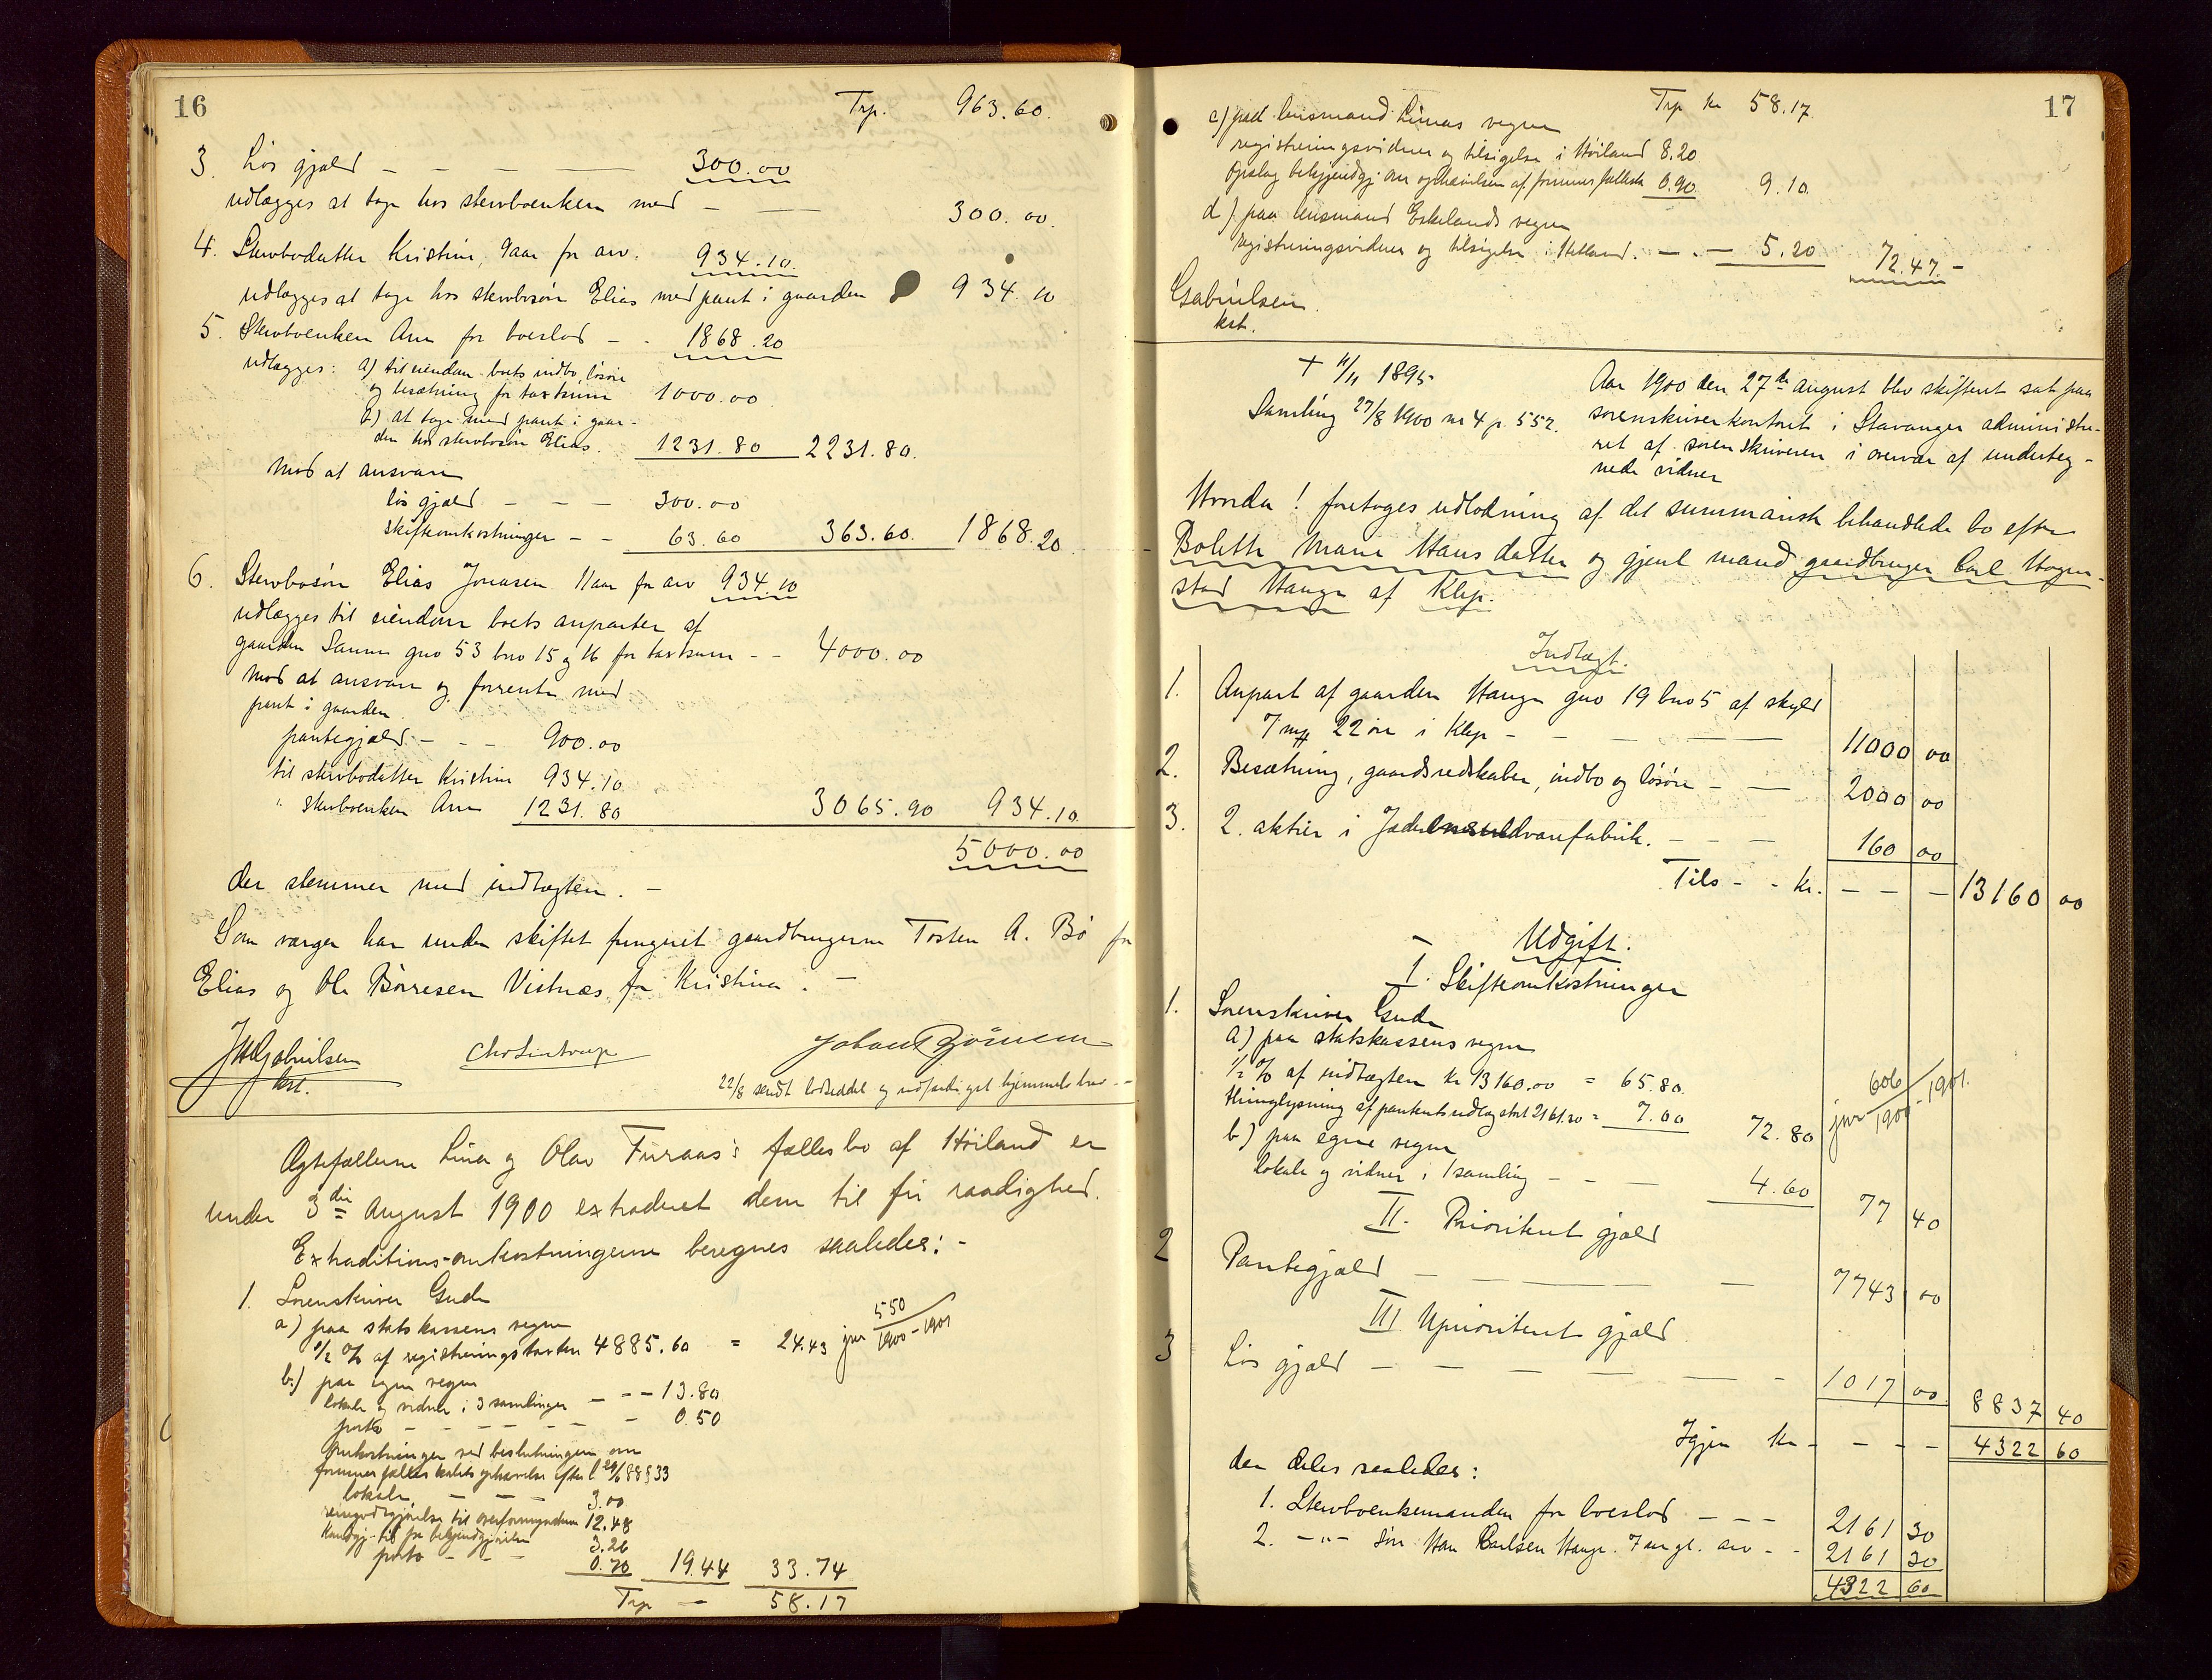 16
Trp. 963.60.
3. Løs gjæld - - - 300.00
udlægges at tage hos stervboenken med - 300.00.
4. Stervbodatter Kristine, 9 aar for arv. 934.10.
udlægges at tage hos stervbosøn Elias med pant i gaarden 934.10
5. Stervboenken Ane for boeslod - - 1868.20
udlægges: a) til eiendom boets indbo, løsøre
og besætning for taxtsum 1000.00
b) at tage med pant i gaar-
den hos stervbosøn Elias. 1231.80 2231.80.
Mod at ansvare
løs gjæld - - - 300.00
skifteomkostninger - - 63.60 363.60. 1868.20
6. Stervbosøn Elias Jonasen 11 aar for arv 934.10
udlægges til eiendom boets anparter af
gaarden Sanne gno 53 bno 15 og 16 for taxtsum - - 4000.00
Mod at ansvare og forrente med
pant i gaarden
pantegjæld - - - 900.00
til stervbodatter Kristine 934.10
" stervboenken Ane 1231.80 3065.90 934.10
5000.00
der stemmer med indtægten. -
Som værger har under skiftet fungeret gaardbrugerne Torsten A. Bø for
Elias og Ole Børresen Vistnæs for Kristine. -
JHGabrielsen
kst.
Chr Lintrup
22/8 sendt lodseddel og udfærdiget hjemmelsbrev -
Ægtefællerne Lina og Olav Furaas's fællesbo af Høiland er
under 3die August 1900 extraderet dem til fri raadighed.
Extraditions-omkostningerne beregnes saaledes: -
1. Sorenskriver Gude
a) paa statskassens vegne
1/2 % af registreringstaxten 4885.60 = 24.43 jnr 550/1900-1901
b.) paa egne vegne
lokale og vidner i 3 samlinger - - - 13.80
porto - - - - - - 0.50
Omkostninger ved beslutningen om
formuesfællesskabets ophævelse efter l 29/6 88 § 33
lokale, - - - 3.00
reisegodtgjørelse til overformynderne 12.48
Kundgj. til for bekjendtgjørelsen 3.26
porto - - - 0.70 19.44 33.74
Trp - 58.17
17
Trp kr 58.17.
c) paa lensmand Limas vegne
registreringsvidner og tilsigelse i Høiland 8.20
Opslag bekjendtgj. om ophævelsen af formuesfællesk 0.90 9.10.
d) paa lensmand Eskelands vegne
registreringsvidner og tilsigelse i Hetland. - . - 5.20 72.47.-
Gabrielsen.
kst.
+ 11/11 1895
Samling 27/8 1900 nr 4 p 552.
Aar 1900 den 27de august blev skifteret sat paa
sorenskriverkontoret i Stavanger administre-
ret af sorenskriveren i overvær af underteg-
nede vidner
Hvorda! foretoges udlodning af det summarisk behandlede bo efter
Bolette Marie Hansdatter og gjenl mand gaardbruger Carl Hogn-
stad Hauge af Klep.
Indtægt.
1. Anpart af gaarden Hauge gno 19 bno 5 af skyld
7 mk 22 øre i Klep - - - - 11000 00
2. Besætning, gaardsredskaber, indbo og løsøre - - 2000 00
3. 2 aktier i Jæderens uldvarefabrik. - - - 160 00
Tils - - kr. - - - 13160 00
Udgift.
I. Skifteomkostninger
1. Sorenskriver Gude
a) paa statskassens vegne
1/2 % af indtægten kr 13160.00 = 65.80.
Thinglysning af panteudlæg stort 2161.30 = 7.00 72.80 jnr 606/1900-1901.
b) paa egne vegne
lokale og vidner i 1 samling - - - 4.60 77 40
II. Prioriteret gjæld
2 Pantegjæld - - - - 7743 00
III Uprioriteret gjæld
3 Løs gjæld - - - - - - 1017 00 8837 40
Igjen kr - - - - 4322 60
der deles saaledes:
1. Stervboenkemanden for boeslod - - - 2161 30
2. - " - søn Han Carlsen Hauge. 7 aar gl. arv - - 2161 30
4322 60